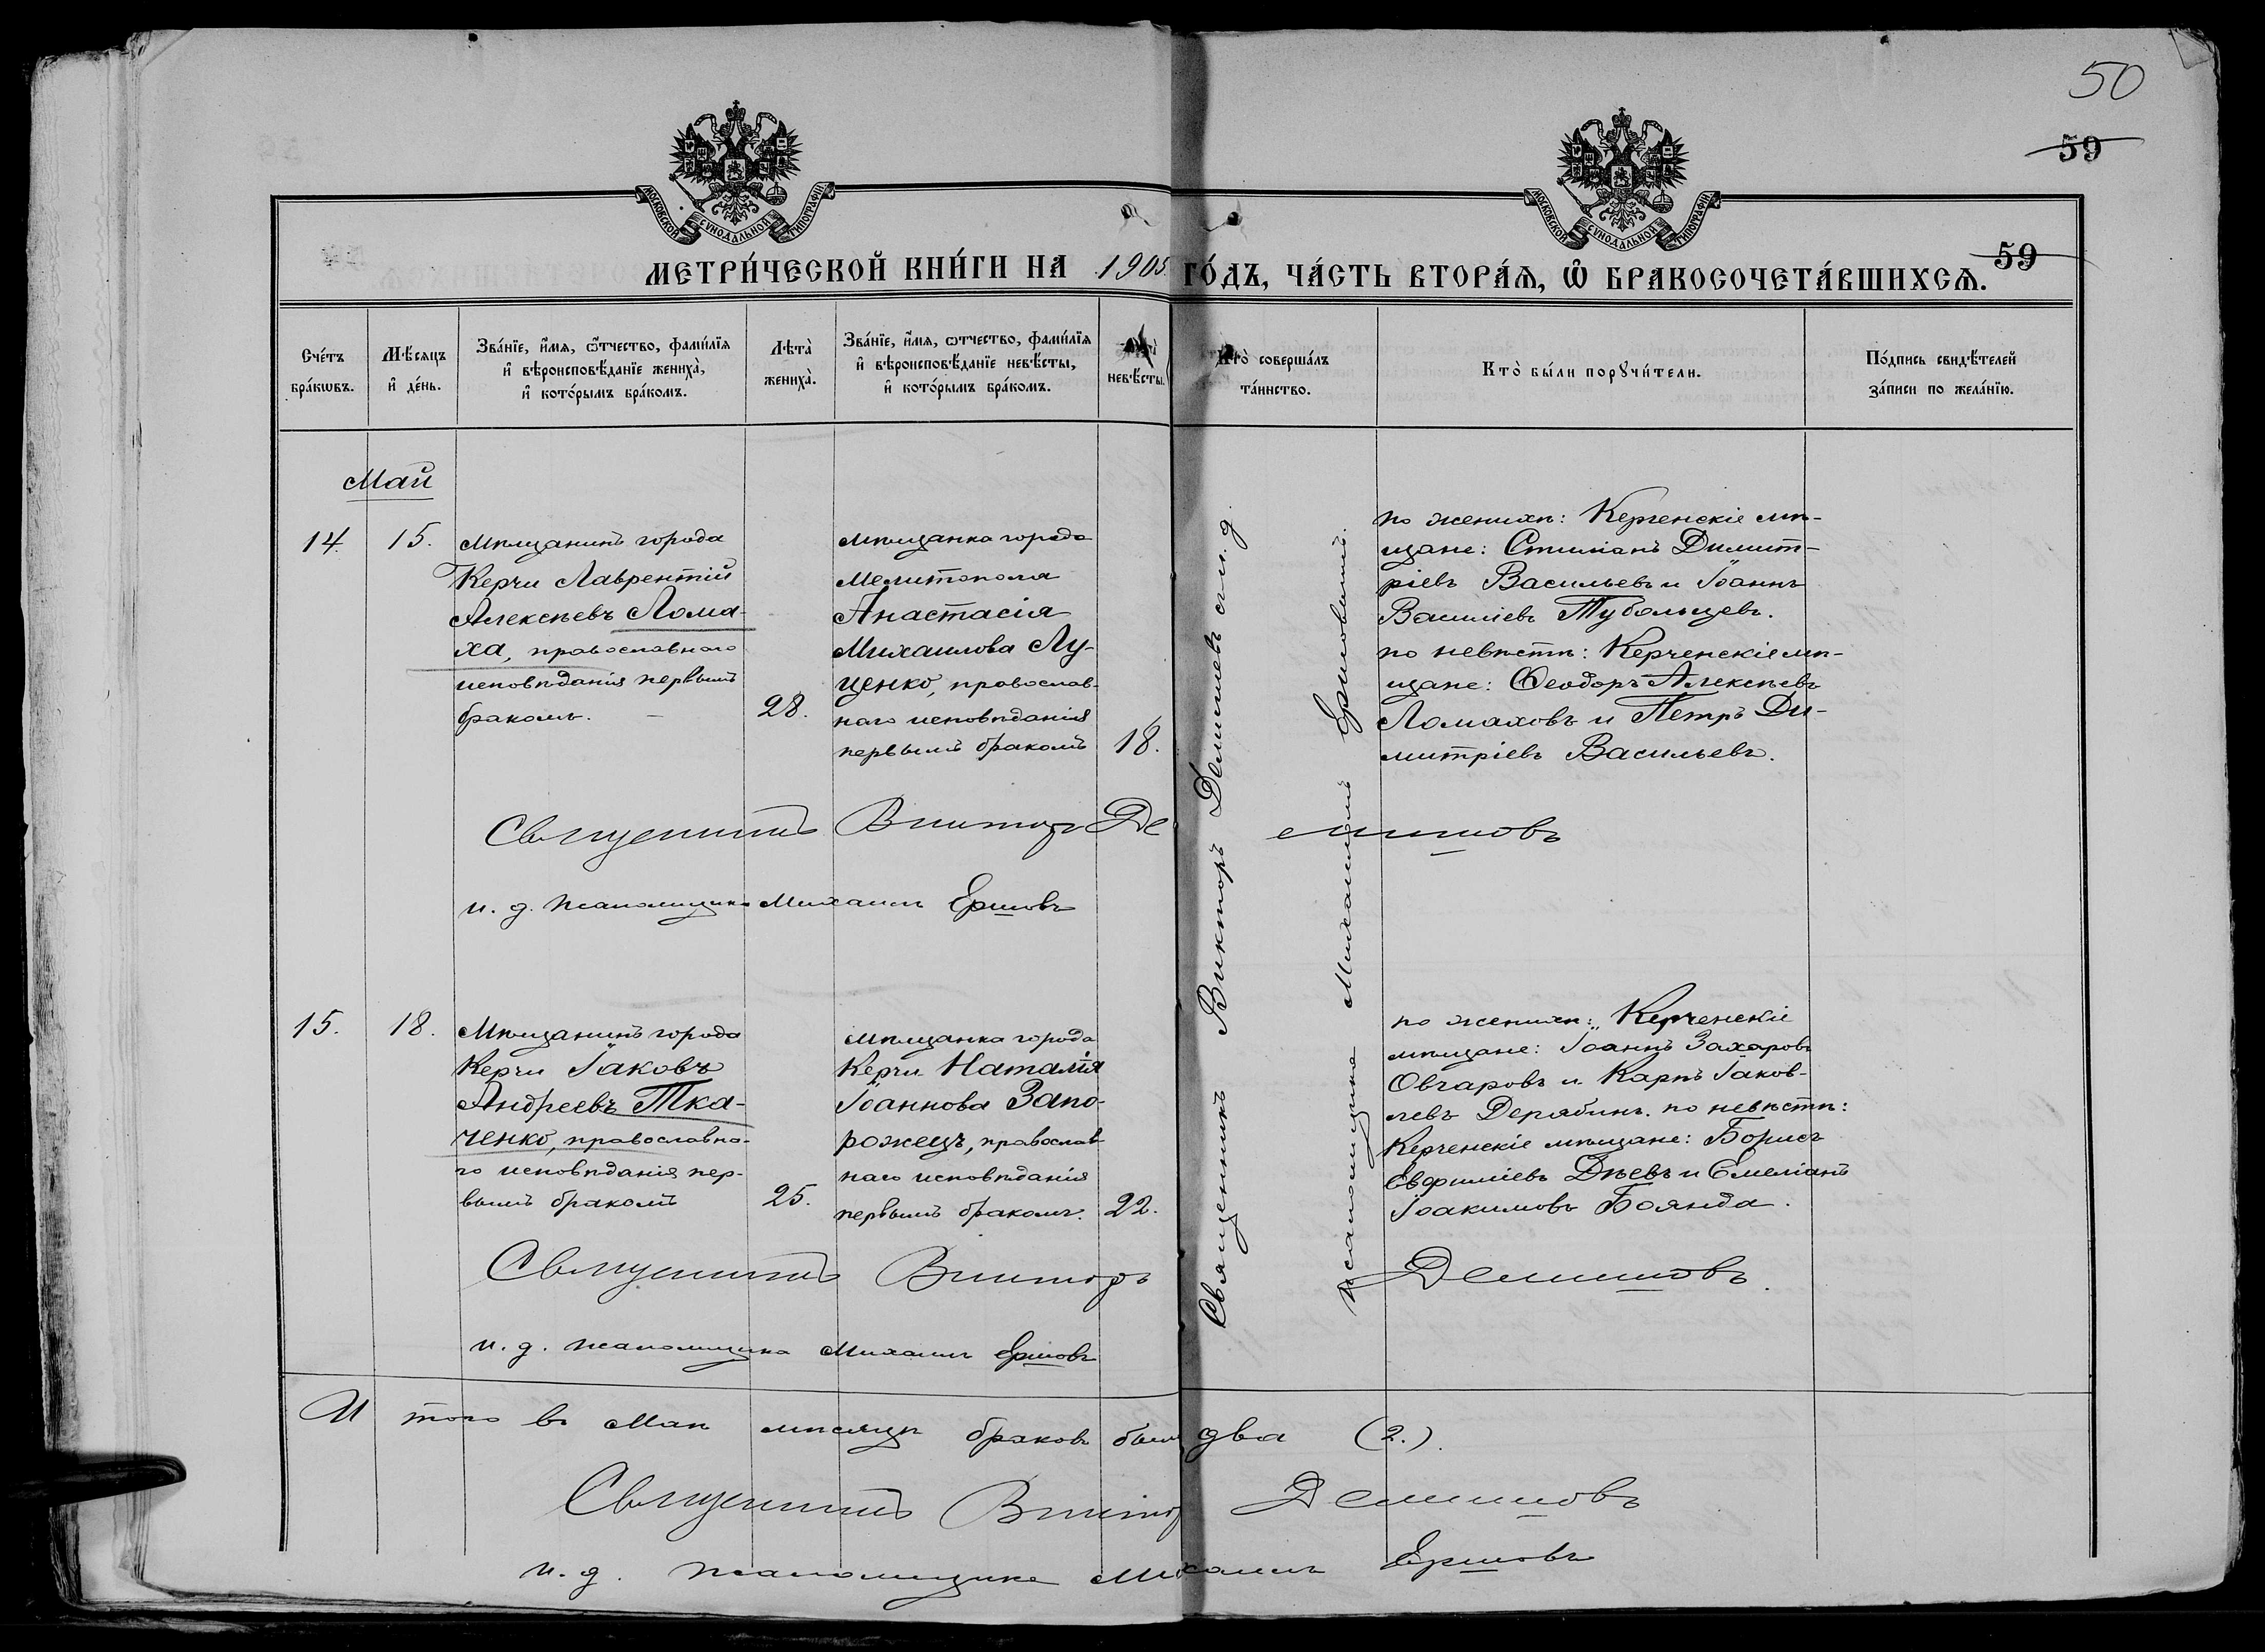 50
59
МОСКОВСКОЙ СѴНОДАЛЬНОЙ ТИПОГРАФІИ
МОСКОВСКОЙ СѴНОДАЛЬНОЙ ТИПОГРАФІИ
59
МЕТРИ́ЧЕСКОЙ КНИ́ГИ НА 1905 ГО́ДЪ, ЧА́СТЬ ВТОРА́Ѧ, Ѽ БРАКОСОЧЕТА́ВШИХСѦ.
Сче́тъ
бра́кѡвъ.
Мѣ́сяцъ
и҆ де́нь.
Зва́нїе, и҆́мя, ѻ҆́тчество, фами́лїя
и҆ вѣроисповѣ́данїе жениха̀,
и҆ кото́рымъ бра́комъ.
Лѣта̀
жениха̀.
Зва́нїе, и҆́мя, ѻтчество, фами́лїя
и҆ вѣроисповѣ́данїе невѣ́сты,
и҆ кото́рымъ бра́комъ.
невѣ́сты.
Кто̀ соверша́лъ
та́инство.
Кто̀ бы́ли порꙋчи́тели.
По́дпись свидѣ́телей
за́писи по жела́нїю.
Май
14.
15.
Мѣщанинъ города
Керчи Лаврентій
Алексѣевъ Лома-
ха, православнаго
исповѣданія первымъ
бракомъ. —
28.
мѣщанка города
Мелитополя
Анастасія
Михаилова Лу-
ценко, православ-
наго исповѣданія
первымъ бракомъ
18.
Священникъ Викторъ Демишевъ с и. д.
псаломщика Михаиломъ
по женихѣ: Керченскіе мѣ-
щане: Стиліанъ Димит-
ріевъ Васильевъ и Іоаннъ
Василіевъ Тубольцевъ.
по невѣстѣ: Керченскіе мѣ-
щане: Ѳеодоръ Алексѣевъ
Ломаховъ и Петръ Ди-
митріевъ Васильевъ.
Священникъ Викторъ Де
и. д. псаломщика Михаилъ Ершовъ
15.
18.
Мѣщанинъ города
Керчи Іаковъ
Андреевъ Тка-
ченко, православна-
го исповѣданія пер-
вымъ бракомъ
25.
мѣщанка города
Керчи Наталія
Іоаннова Запо-
рожецъ, православ-
наго исповѣданія
первымъ бракомъ.
22.
по женихѣ: Керченскіе
мѣщане: Іоаннъ Захаровъ
Овчаровъ и Карпъ Іаков-
левъ Дерябинъ. по невѣстѣ:
Керченскіе мѣщане: Борисъ
Евфиміевъ Дѣевъ и Емеліанъ
Іоакимовъ Боянда.
Священникъ Викторъ
и. д. псаломщика Михаилъ Ершовъ
И того въ Маѣ мѣсяцѣ браковъ было два (2.).
Священникъ Викторъ
и. д. псаломщика Михаилъ Ершовъ